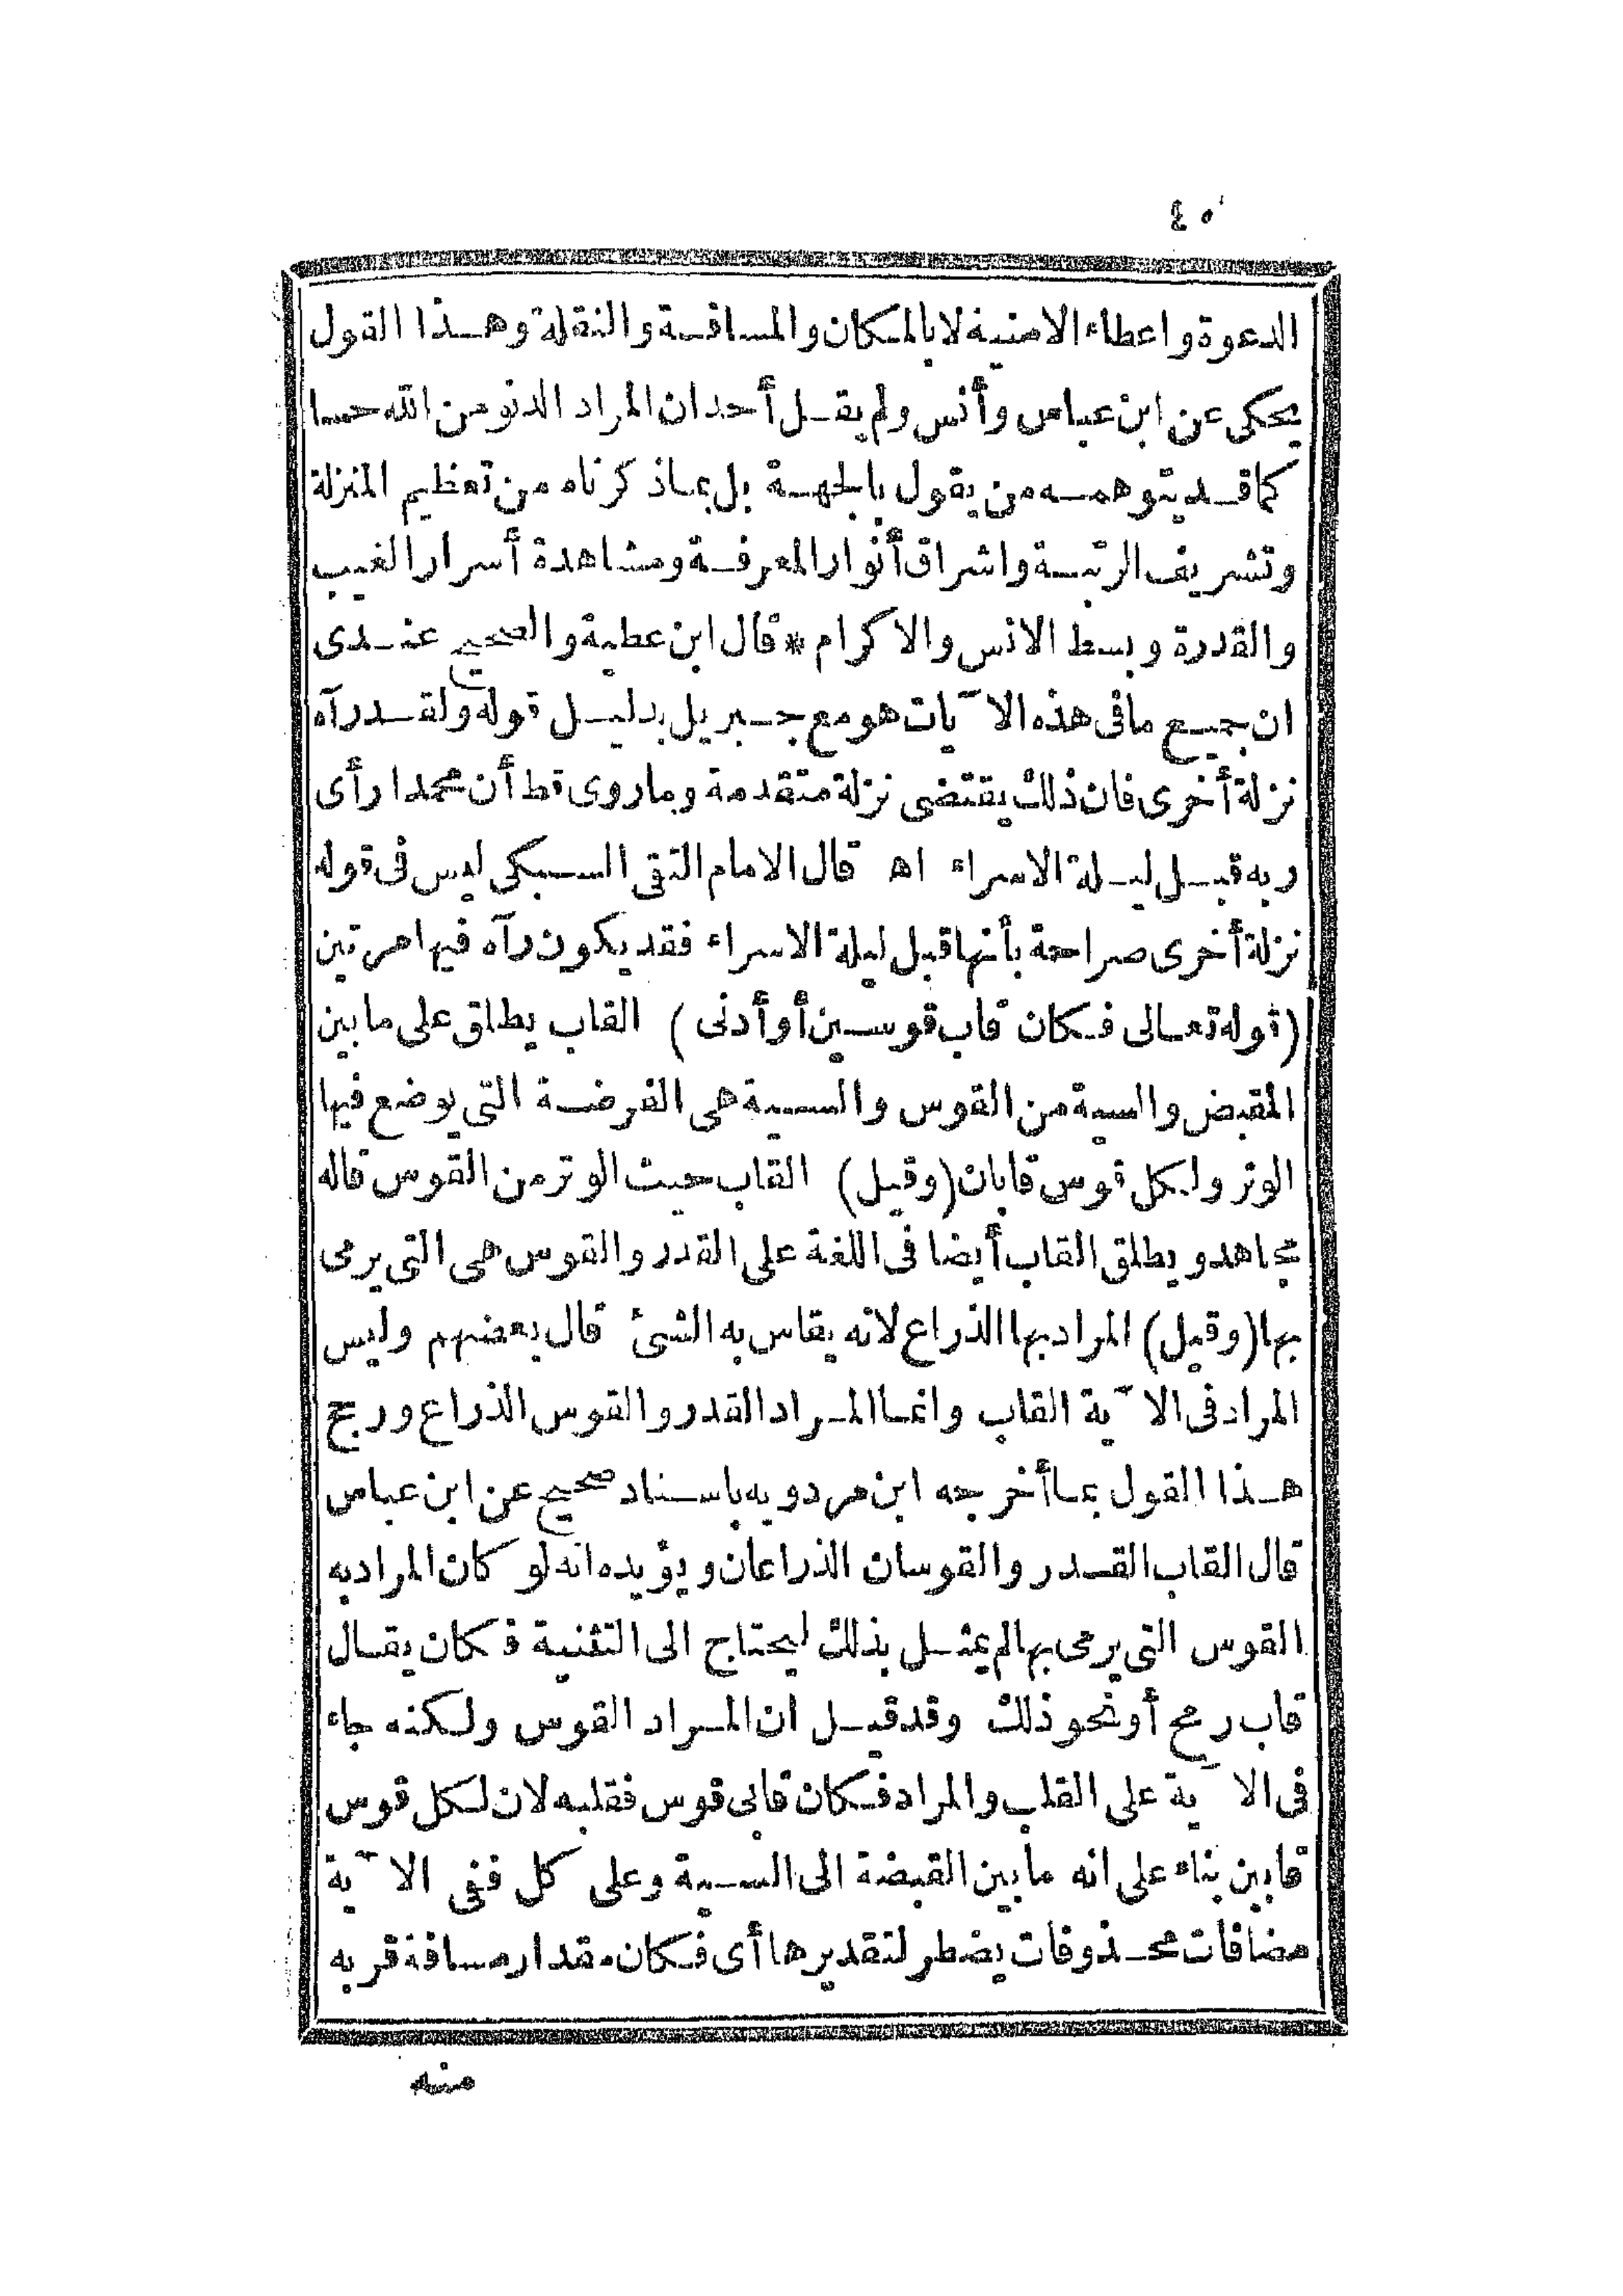 ٤٥
الدعوة واعطاء الامنية لا بالمكان والمسافة والنقلة وهذا القول
يحكى عن ابن عباس وأنس ولم يقل أحد ان المراد الدنو من الله حسا
كما قد يتوهمه من يقول بالجهة بل بما ذكرناه من تعظيم المنزلة
وتشريف الرتبة واشراق أنوار المعرفة ومشاهدة أسرار الغيب
والقدرة وبسط الانس والاكرام * قال ابن عطية والصحيح عندى
ان جميع ما فى هذه الآيات هو مع جبريل بدليل قوله ولقد رآه
نزلة أخرى فان ذلك يقتضى نزلة متقدمة وما روى قط أن محمدا رأى
ربه قبل ليلة الاسراء اه قال الامام التقى السبكى ليس فى قوله
نزلة أخرى صراحة بأنها قبل ليلة الاسراء فقد يكون رآه فيها مرتين
(قوله تعالى فكان قاب قوسين أو أدنى) القاب يطلق على ما بين
المقبض والسية من القوس والسية هى الفرضة التى يوضع فيها
الوتر ولكل قوس قابان (وقيل) القاب حيث الوتر من القوس قاله
مجاهد ويطلق القاب أيضا فى اللغة على القدر والقوس هى التى يرمى
بها (وقيل) المراد بها الذراع لانه يقاس به الشئ قال بعضهم وليس
المراد فى الآية القاب وانما المراد القدر والقوس الذراع ورجح
هذا القول بما أخرجه ابن مردويه باسناد صحيح عن ابن عباس
قال القاب القدر والقوسان الذراعان ويؤيده انه لو كان المراد به
القوس التى يرمى بها لم يمثل بذلك ليحتاج الى التثنية فكان يقال
قاب رمح أو نحو ذلك وقد قيل ان المراد القوس ولكنه جاء
فى الآية على القلب والمراد فكان قابى قوس فقلبه لان لكل قوس
قابين بناء على انه ما بين القبضة الى السية وعلى كل ففى الآية
مضافات محذوفات يضطر لتقديرها أى فكان مقدار مسافة قربه
منه